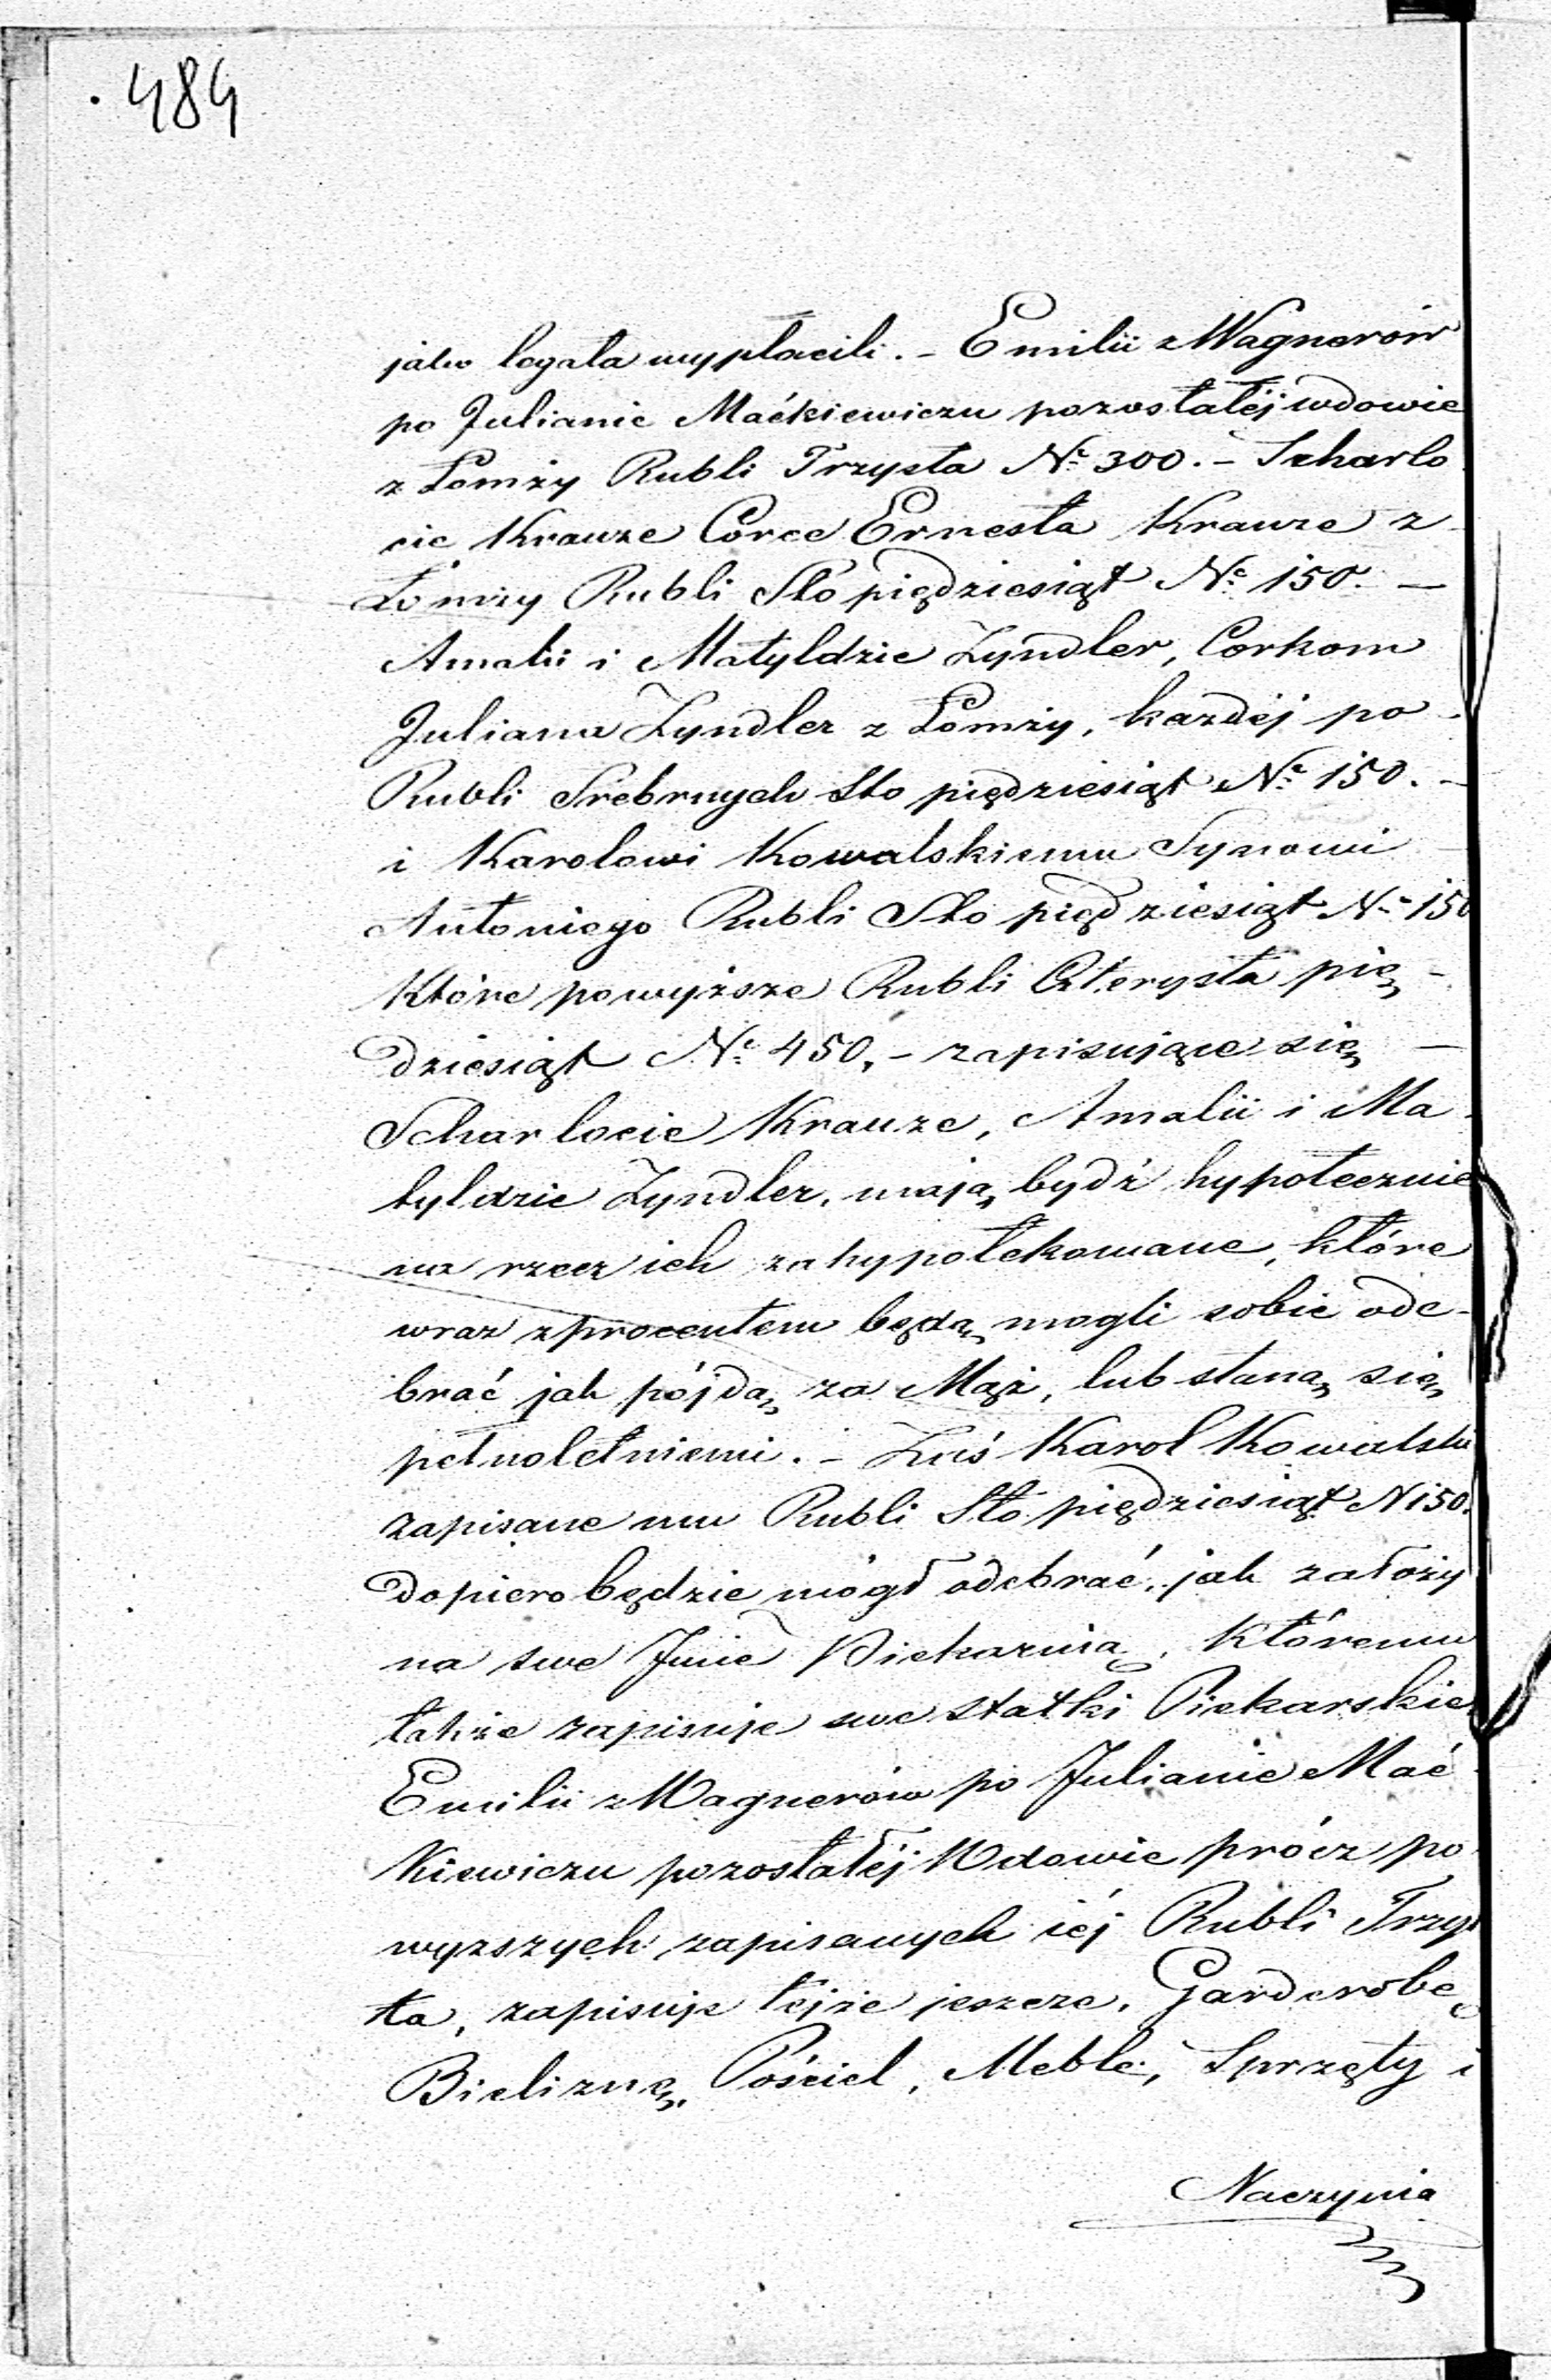 484
jako legata wypłacili. – Emilii z Wagnerów
po Julianie Maćkiewiczu pozostałéj wdowie
z Łomży Rubli Trzysta Nᵒ 300. – Scharlo
cie Krauze Corce Ernesta Krauze z
Łomży Rubli Sto piędziesiąt Nᵒ 150. –
Amalii i Matyldzie Zyndler, Corkom
Juliana Zyndler z Łomży, każdéj po
Rubli Srebrnych Sto piędziesiąt Nᵒ 150. –
i Karolowi Kowalskiemu Synowi –
Antoniego Rubli Sto pięd ziesiąt Nᵒ 150
Które powyższe Rubli Czterysta pię –
dziesiąt Nᵒ 450, – zapisujące się –
Scharlocie Krauze, Amalii i Ma
tyldzie Zyndler, mają bydź hypotecznie
na rzecz ich zahypotekowane, które
wraz z procentem będą mogli sobie ode-
brać jak pójdą za Mąż, lub staną się
pełnoletniemi. – Zaś Karol Kowalski
zapisane mu Rubli Sto pięździesiąt N 150.
dopiero będzie mógł odebrać, jak założy
na swe Jmie Piekarnią, Któremu
także zapisuje swe statki Piekarskie
Emilii z Wagnerów po Julianie Mać
Kiewiczu pozostałéj Wdowie prócz po
wyzszych zapisanych iéj Rubli Trzys
ta, zapisuje tejże jeszcze, Garderobę
Bieliznę, Pościel, Meble, Sprzęty i
Naczynia